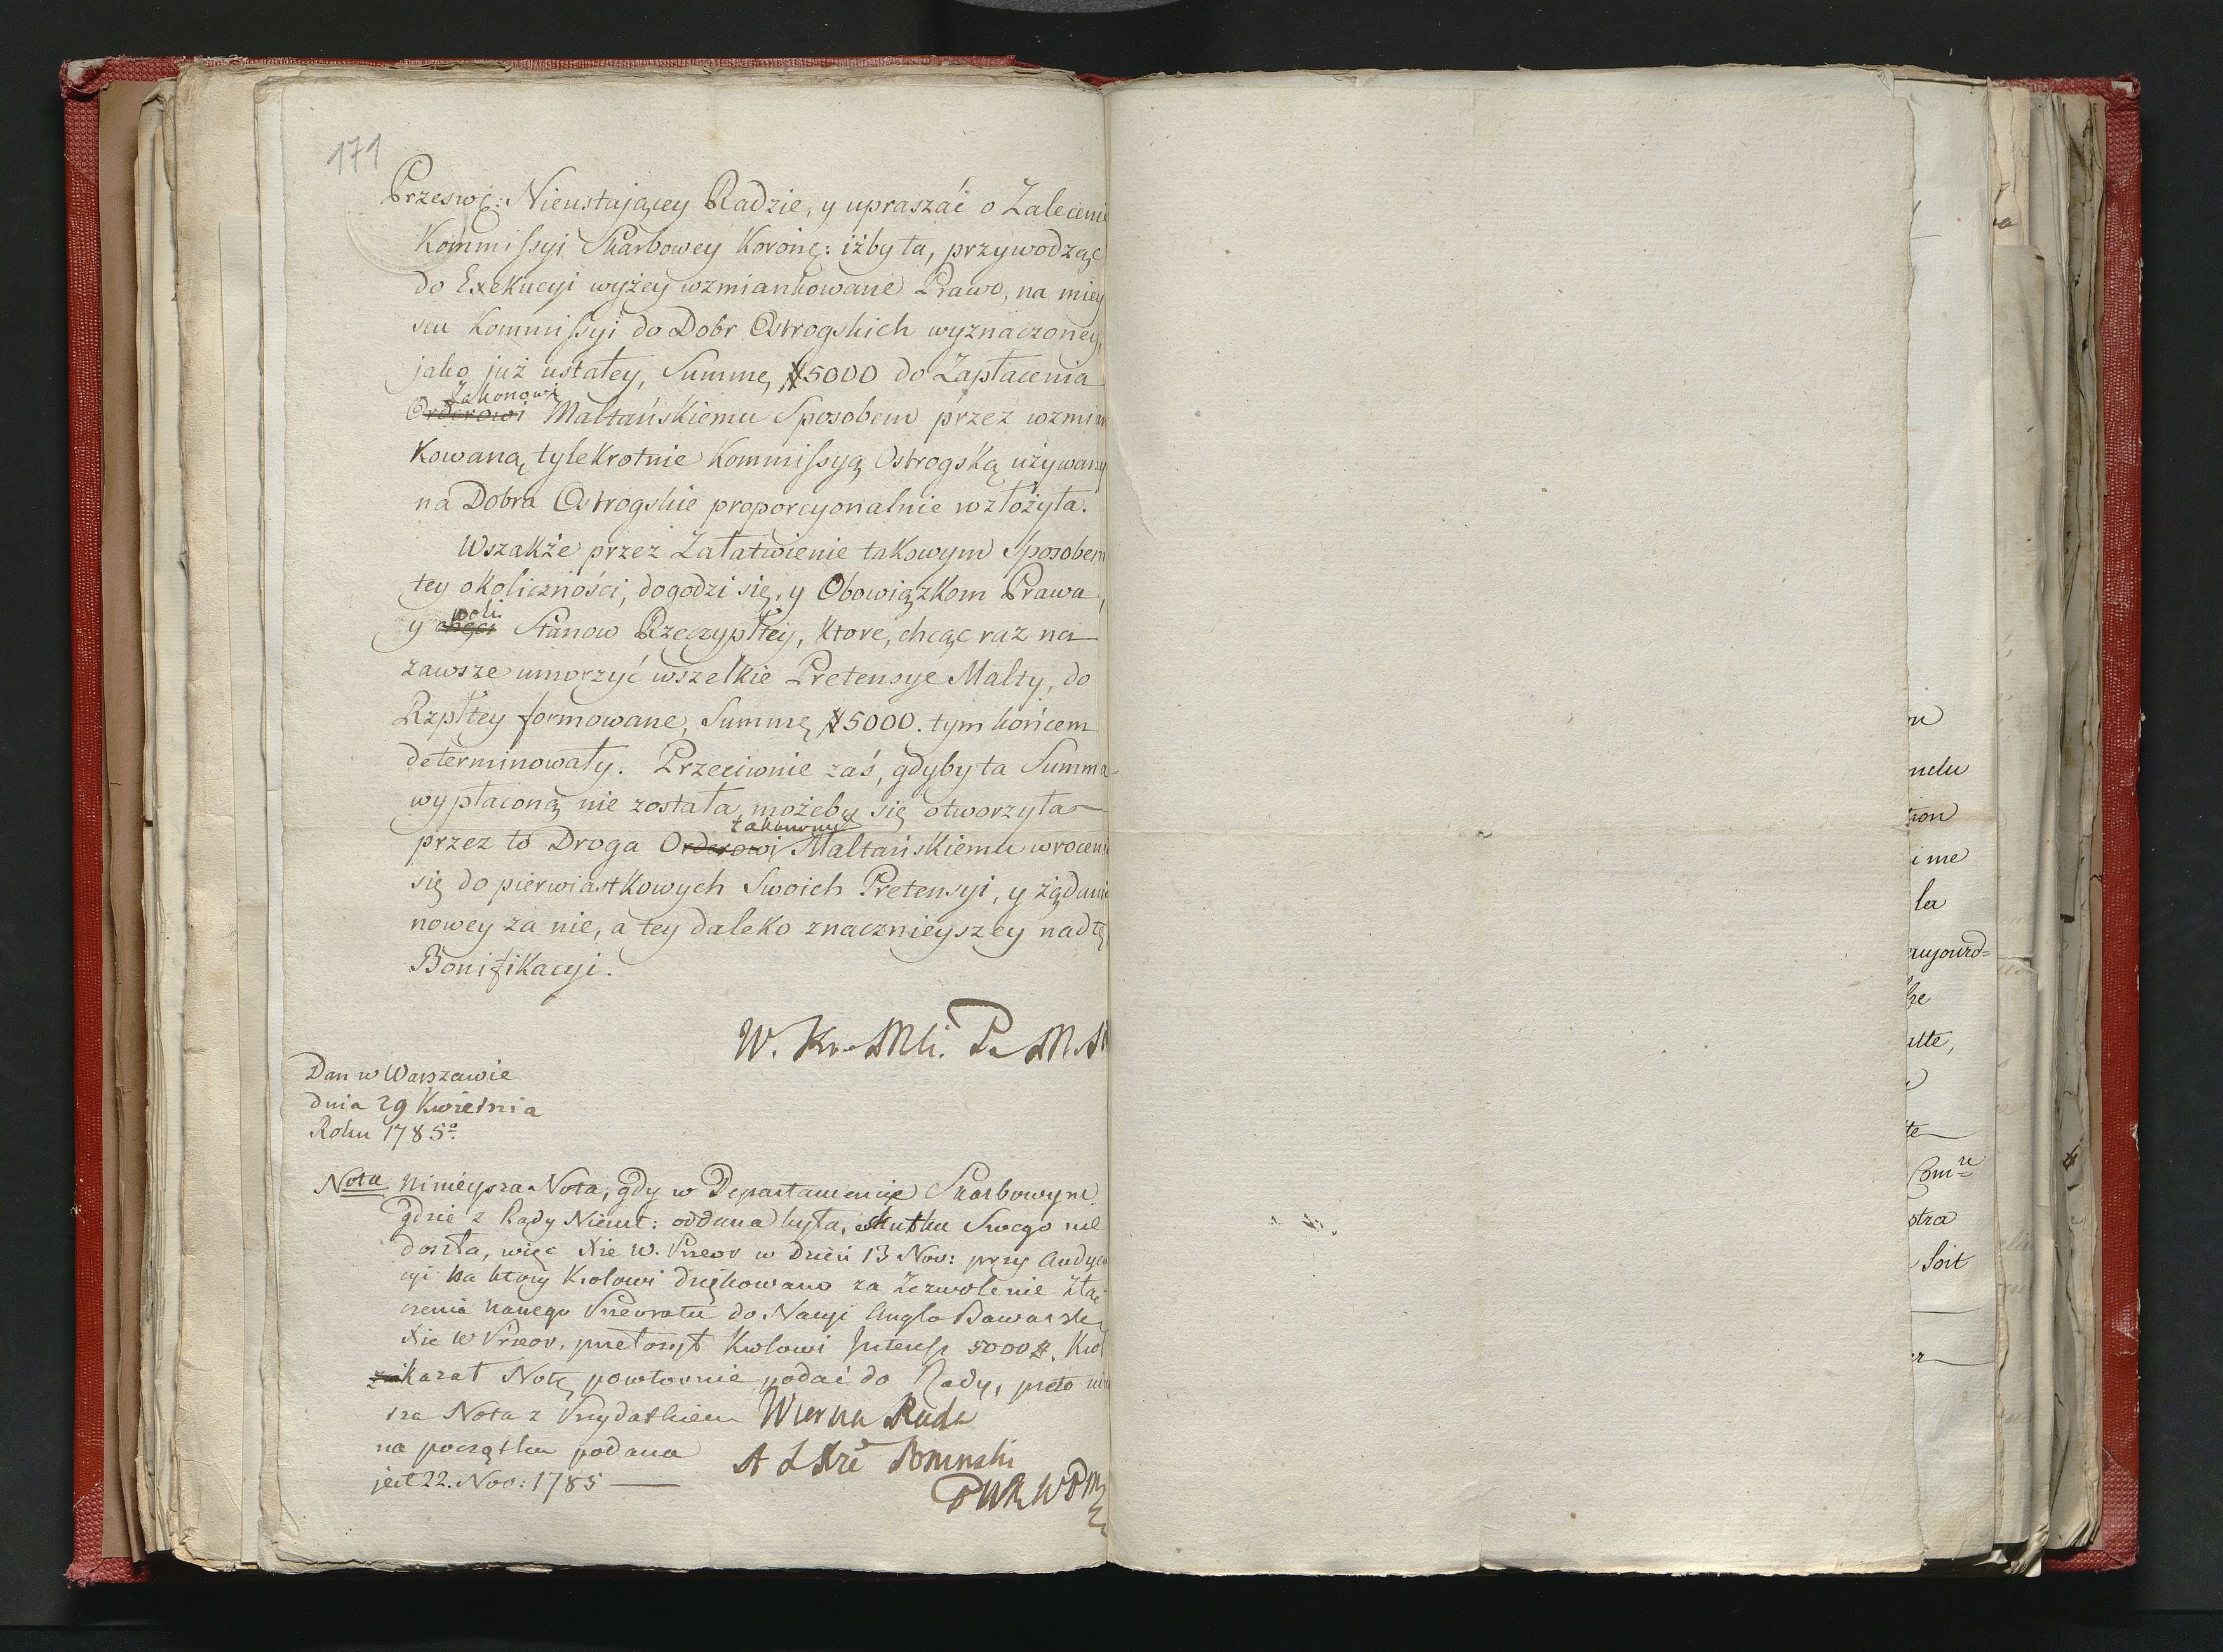 171
Przeswę: Nieustającey Radzie, y upraszać o Zalecenie
Kommissyi Skarbowey Koronę: iżby ta, przywodząc
do Exekucyi wyżey wzmiankowane Prawo, na miey
scu Kommissyi do Dobr Ostrogskich wyznaczoney,
jako już ustałey, Summę #5000 do Zapłacenia
Zakonowi
Orderowi Maltańskiemu Sposobem przez wzmian
kowaną tylekrotnie Kommissyą Ostrogską używany
na Dobra Ostrogskie proporcyonalnie wzłożyła.
Wszakże przez Załatwienie takowym Sposobem
tey okoliczności, dogodzi się, y Obowiązkom Prawa,
woli
y chęci Stanow Rzeczypltey, ktore, chcąc raz na
zawsze umorzyć wszelkie Pretensye Malty, do
Rzpltey formowane, Summę #5000. tym końcem
determinowały. Przeciwnie zaś, gdyby ta Summa
wypłaconą nie została, możeby się otworzyła
zakonowi
przez to Droga Orderowi Maltańskiemu wroceni
się do pierwiastkowych Swoich Pretensyi, y żądani
nowey za nie, a tey daleko znacznieyszey nad tę
Bonifikacyi.
W. Kr. Mci. P. M. M
Dan w Warszawie
dnia 29 Kwietnia
Roku 1785º.
Nota Ninieysza Nota, gdy w Departamencie Skarbowym
gdzie z Rady Nieust: oddana była, skutku Swego nie
doszła, więc Xie W. Przeor w Dzień 13 Nov: przy Audyen
cyi na ktorey Krolowi dziękowano za Zezwolenie Złą
czenia naszego Przeoratu do Nacyi Anglo Bawarskiey
Xie W Przeor. przełożył Krolowi Interess 5000 #. Krol
kazał Notę powtornie podać do Rady, przeto nin
sza Nota z Przydatkiem Wierna Rada
na początku podana A L Xże Poninski
jest 22. Nov: 1785
nelu
la
aujourd=
Com.re
Soit